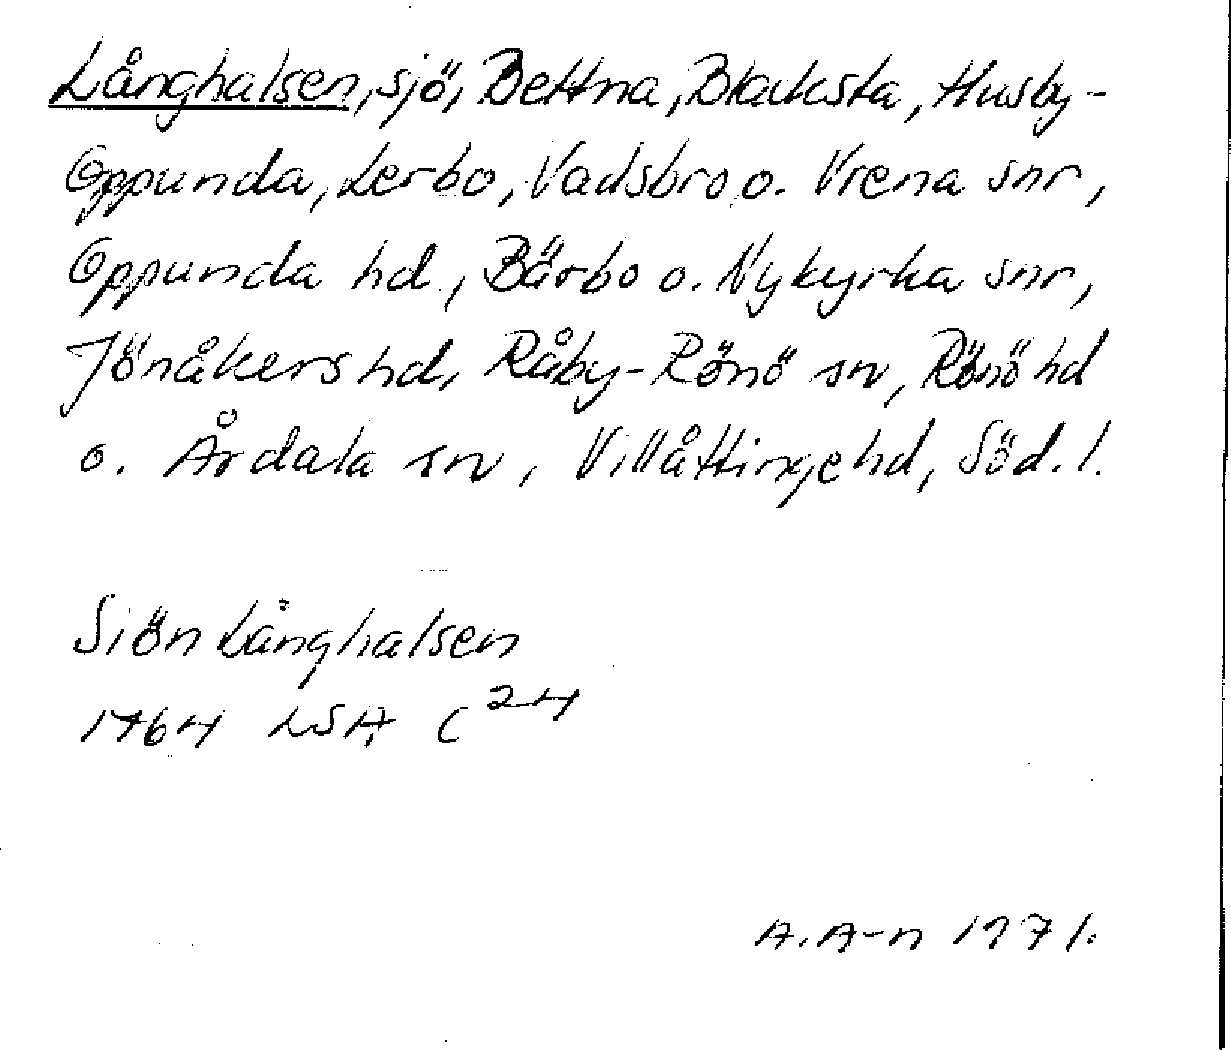 Långhalsen, sjö, Bettna, Blacksta, Husby-
Oppunda, Lerbo, Vadsbro o. Vrena snr,
Oppunda hd, Bärbo o. Nykyrka snr,
Jönåkers hd, Råby-Rönö sn, Rönö hd
o. Årdala sn, Villåttinge hd, Söd. l.
Siön Långhalsen
1764 LSA C 24
A. A-n 1971.